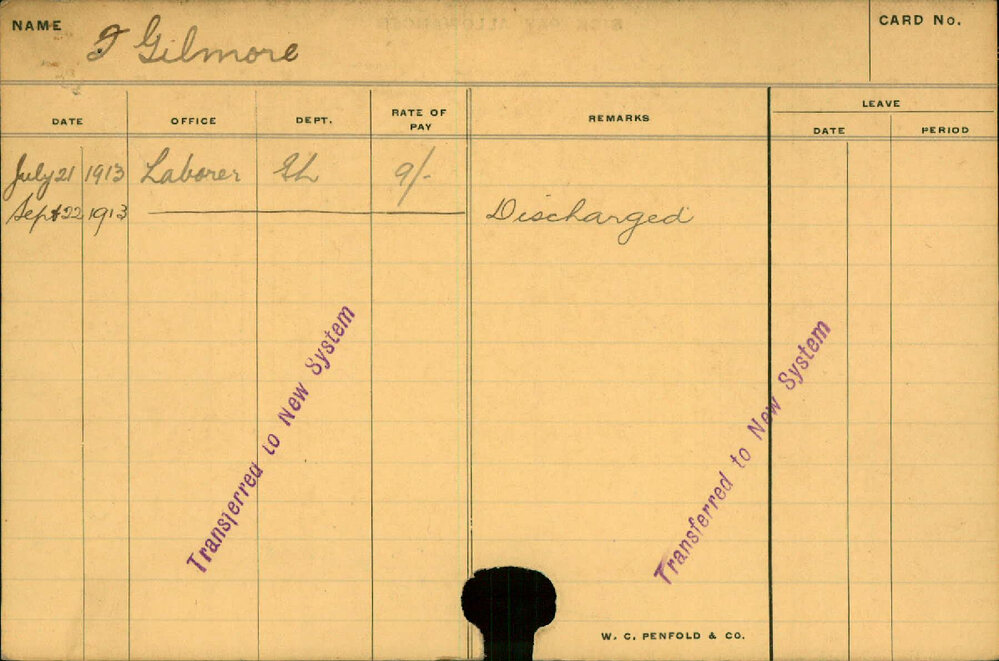 NAME Gilmore CARD No.
DATE OFFICE DEPT. RATE OF PAY REMARKS LEAVE
DATE PERIOD
July 21 1913 Laborer 9/-
Sept 22 1913 Discharged
Transferred to New System
Transferred to New System
W. C. PENFOLD & CO.